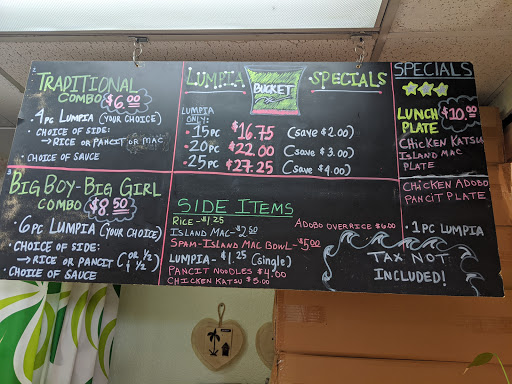 TRADITIONAL
COMBO $6.00
4PC LUMPIA (YOUR CHOICE)
• CHOICE OF SIDE:
→ RICE OR PANCIT OR MAC
• CHOICE OF SAUCE
BIG BOY-BIG GIRL
COMBO $8.50
• 6PC LUMPIA (YOUR CHOICE)
• CHOICE OF SIDE:
→ RICE OR PANCIT (OR 1/2 & 1/2)
• CHOICE OF SAUCE
LUMPIA BUCKET SPECIALS
LUMPIA
ONLY:
• 15PC $16.75 (SAVE $2.00)
• 20PC $22.00 (SAVE $3.00)
• 25PC $27.25 (SAVE $4.00)
SIDE ITEMS
RICE - $1.25
ISLAND MAC - $2.50
SPAM-ISLAND MAC BOWL - $5.00
LUMPIA - $1.25 (Single)
PANCIT NOODLES $4.00
CHICKEN KATSU $5.00
ADOBO OVER RICE $6.00
SPECIALS
LUNCH $10.00
PLATE
CHICKEN KATSU
ISLAND MAC
PLATE
CHICKEN ADOBO
PANCIT PLATE
• 1PC LUMPIA
TAX NOT
INCLUDED!